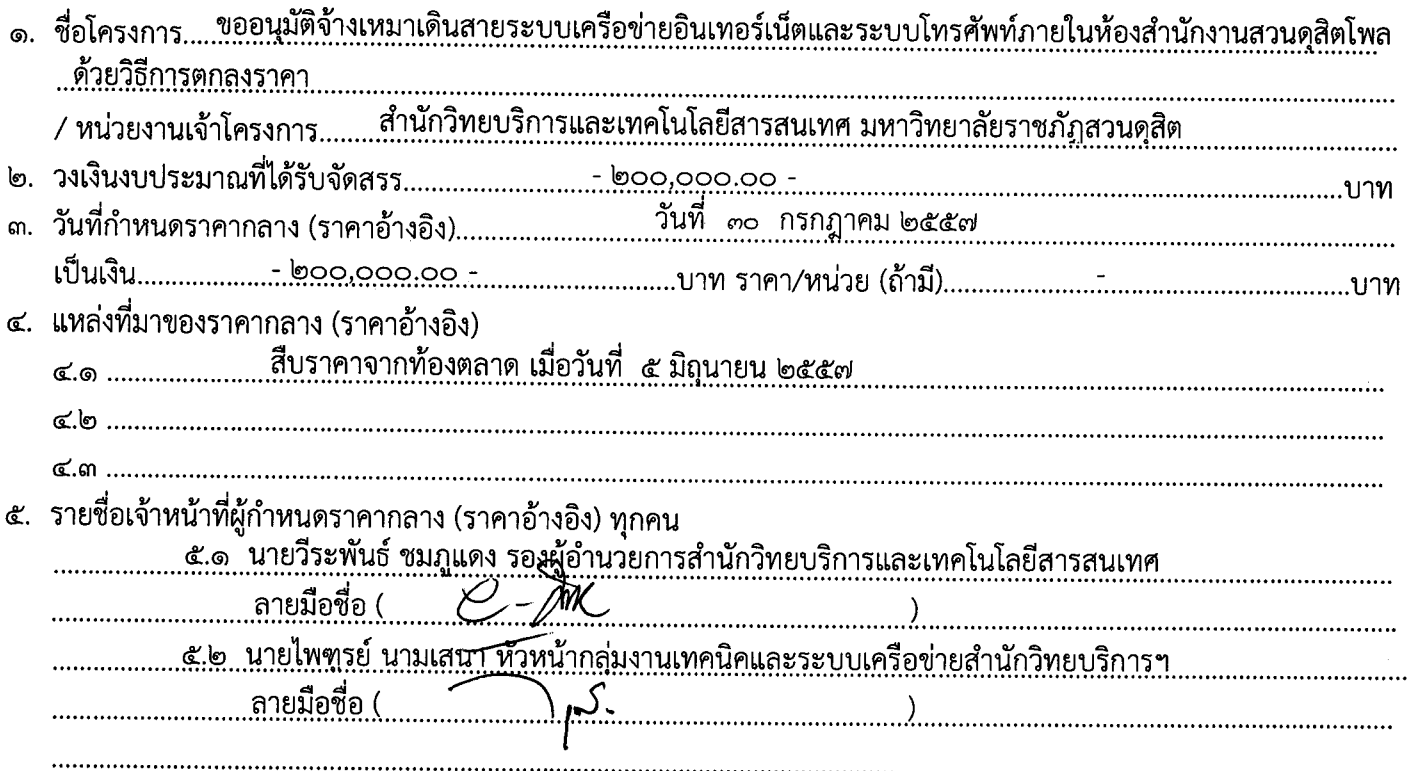 ๑. ชื่อโครงการ....ขออนุมัติจ้างเหมาเดินสายระบบเครือข่ายอินเทอร์เน็ตและระบบโทรศัพท์ภายในห้องสำนักงานสวนดุสิตโพล
ด้วยวิธีการตกลงราคา
/ หน่วยงานเจ้าโครงการ........สำนักวิทยบริการและเทคโนโลยีสารสนเทศ มหาวิทยาลัยราชภัฏสวนดุสิต
๒. วงเงินงบประมาณที่ได้รับจัดสรร........- ๒๐๐,๐๐๐.๐๐ -........บาท
๓. วันที่กำหนดราคากลาง (ราคาอ้างอิง)........วันที่ ๓๐ กรกฎาคม ๒๕๕๗
เป็นเงิน........- ๒๐๐,๐๐๐.๐๐ -........บาท ราคา/หน่วย (ถ้ามี)........-........บาท
๔. แหล่งที่มาของราคากลาง (ราคาอ้างอิง)
๔.๑ ........สืบราคาจากท้องตลาด เมื่อวันที่ ๕ มิถุนายน ๒๕๕๗
๔.๒ ........
๔.๓ ........
๕. รายชื่อเจ้าหน้าที่ผู้กำหนดราคากลาง (ราคาอ้างอิง) ทุกคน
๕.๑ นายวีระพันธ์ ชมภูแดง รองผู้อำนวยการสำนักวิทยบริการและเทคโนโลยีสารสนเทศ
ลายมือชื่อ ( )
๕.๒ นายไพฑูรย์ นามเสนา หัวหน้ากลุ่มงานเทคนิคและระบบเครือข่ายสำนักวิทยบริการฯ
ลายมือชื่อ ( )